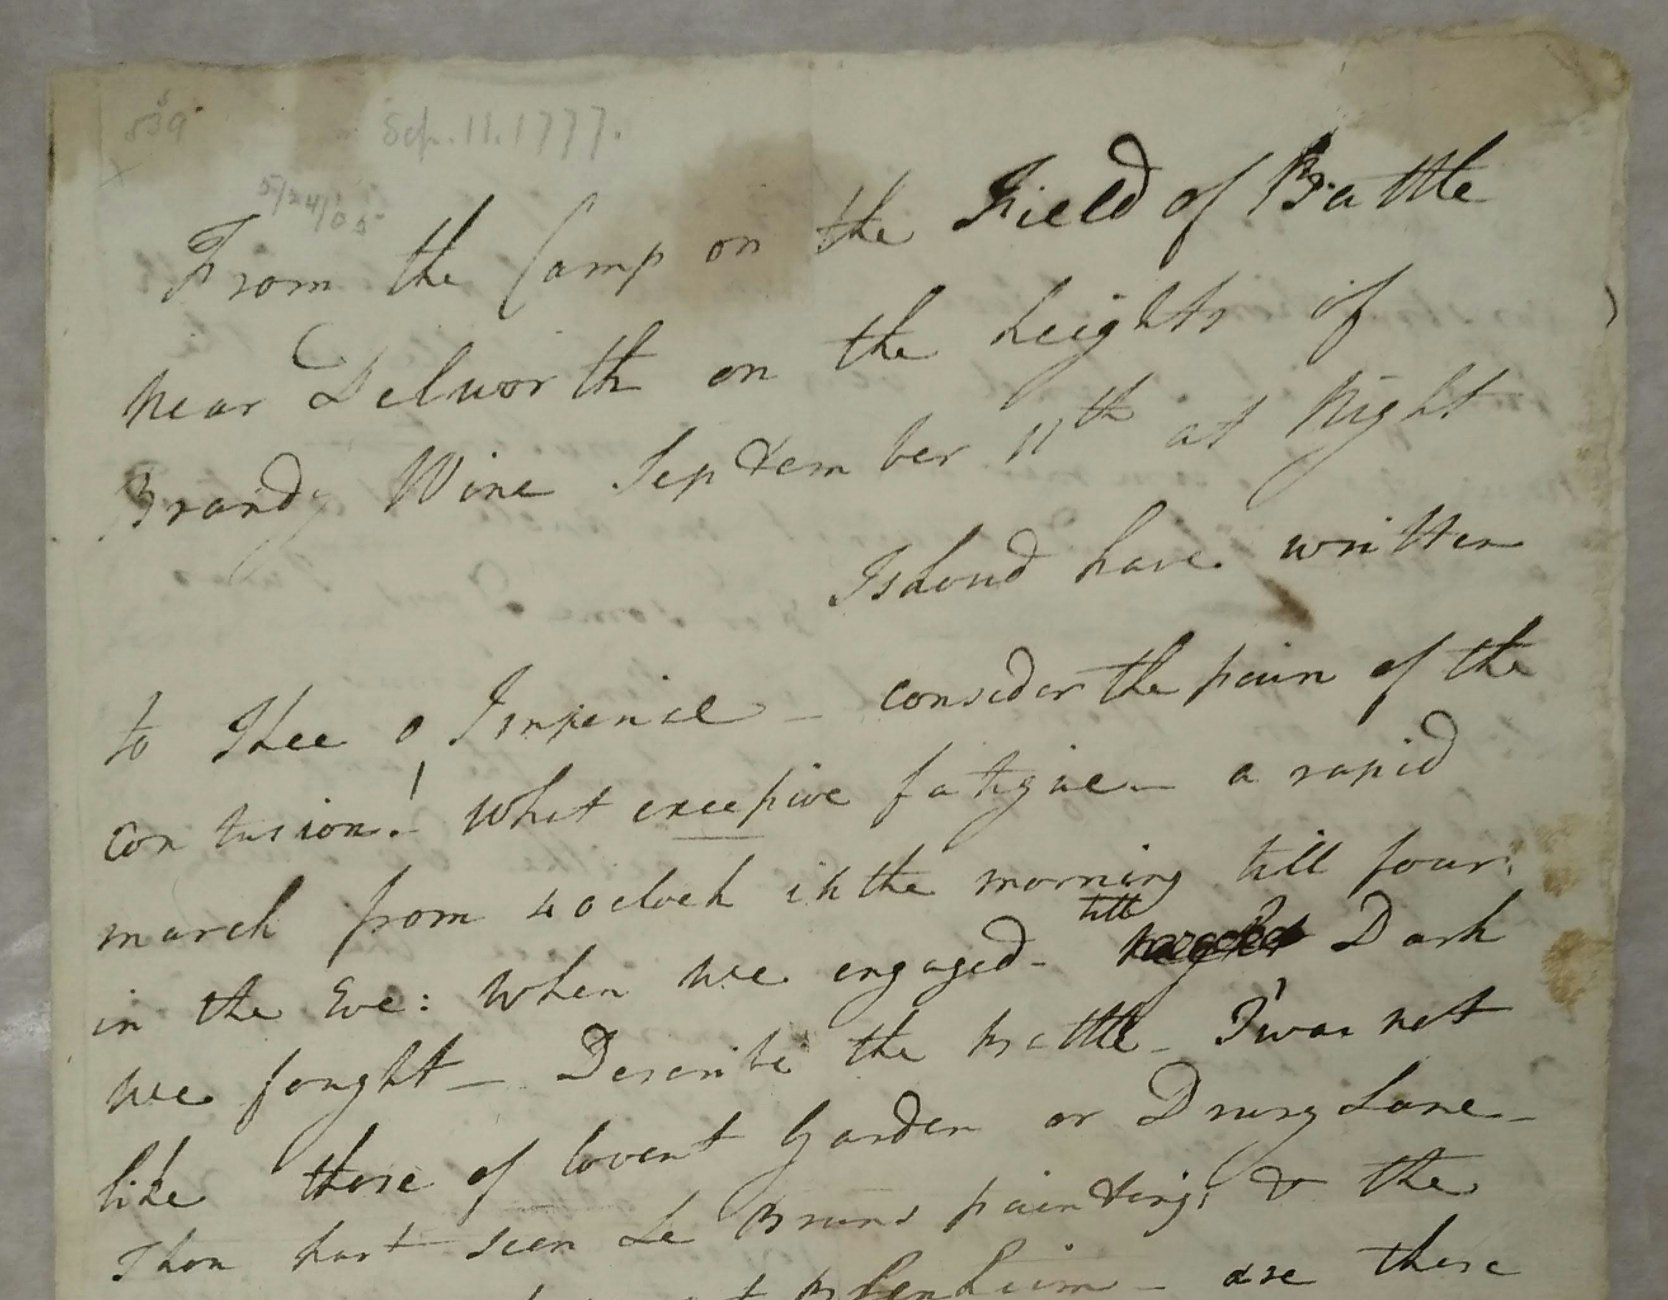 Sep. 11. 1777.
5/24/05
From the Camp on the Field of Battle
near Delworth on the heights of
Brandy Wine September 11th at Night
I shoud have written
to Thee o Imperiel - consider the pain of the
contusion! What excessive fatigue - a rapid
march from 4 oclock in the morning till four
in the Eve: When we engaged - till Dark
we fought - Describe the battle - T'was not
like those of Covent Garden or Drury Lane -
Thou hast seen Le Bruns paintings & the
at Blenheim - are these